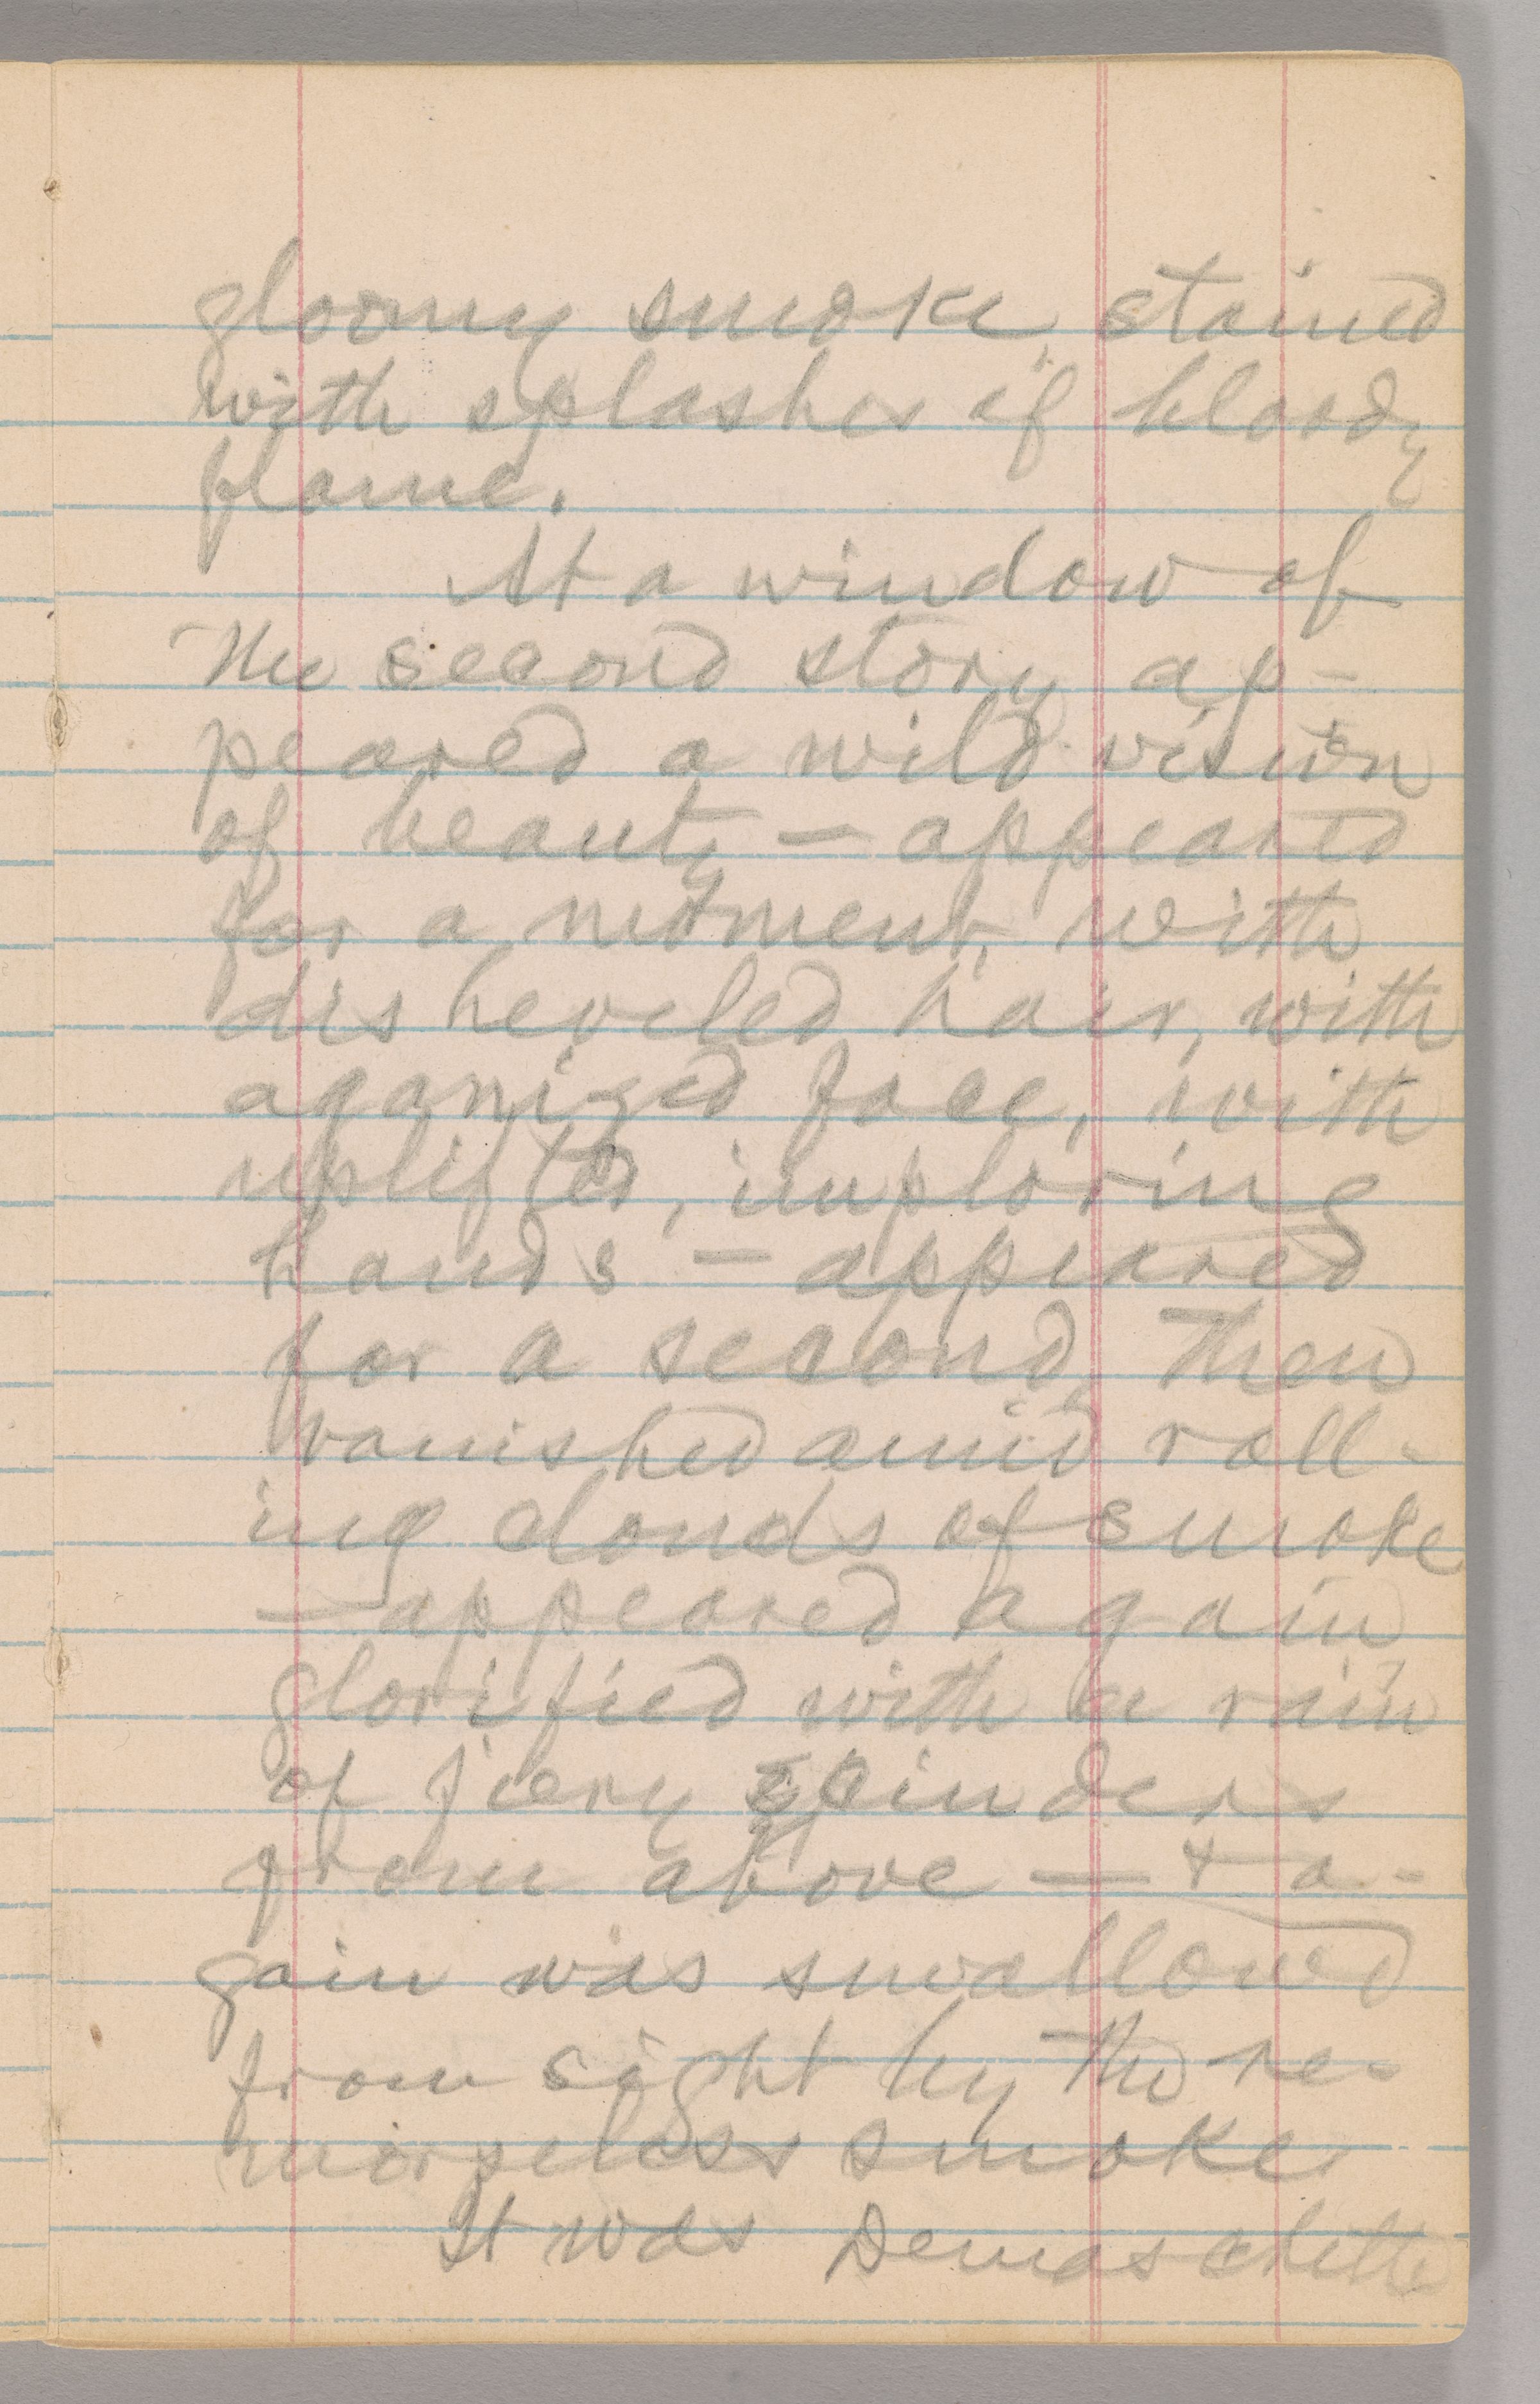 gloomy smoke, stained
with splashes of bloody
flame.
At a window of
the second story ap-
peared a wild vision
of beauty — appeared
for a moment, with
disheveled hair, with
agonized face, with
uplifted, imploring
hands — appeared
for a second, then
vanished amid roll-
ing clouds of smoke
— appeared again
glorified with a rain
of fiery cinders
from above — & a-
gain was swallowed
from sight by the re-
morseless smoke.
It was